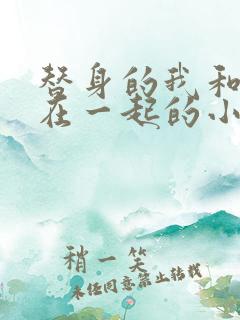 替身的我和
在一起的小
稍一笑
未经同意禁止转载